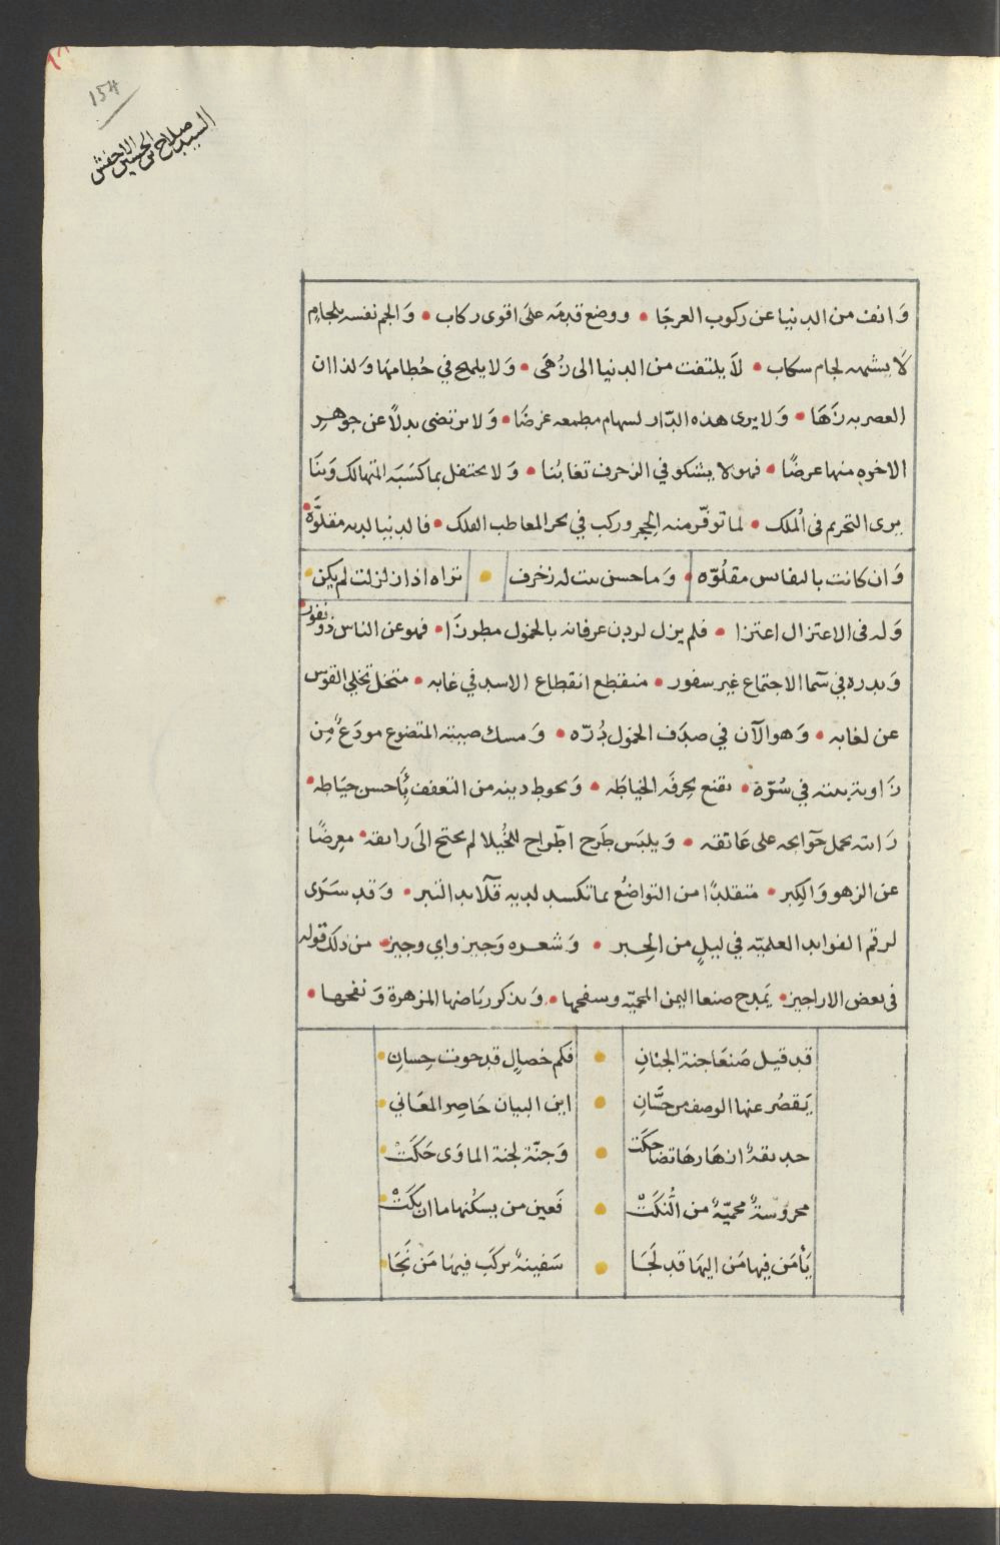 154
السيد صلاح بن الحسين الاخفش
وَانف من الدنيا عن ركوب العرجَا • ووضع قدمَه علىَ اقوى ركاب • وَالجم نفسه بلجامٍ
لَا يشبهه لجام سكاب • لَا يلتفت من الدنيا الى زَهىَ • وَلا يلمح في حُطامهَا وَلذا ان
العصر به زَهَا • وَلا يرى هذه الدّار لسهام مطمعه غرضَا • وَلا يرتضى بدلًا عن جوهرِ
الاخره منها عرضًا • فهو لا يشكو في الزخرف تغابُنا • وَلا يحتفل بما كسَبَه المتهالك وَبنَا
يرى التحريم فى الملك • لما توفّر منه الحِجر وركب في بحر المعاطب الفلك • فالدنيا لديه مقلوَّة •
وَان كانت بالنفائس مقلُوّه • وَما حسن بيت له زخرف • تراه اذا زلزلت لم يكن •
وَله فى الاعتزال اعتزا • فلم يزل لردن عرفانه بالخمول مطرزًا • فهو عن الناس ذو نفور •
وَبدره في سَما الاجتماع غير سفور • منقطع انقطاع الاسد في غابه • متخل تخلي القوس
عن لغابه • وَهو الآن في صدَف الخمول دُرّه • وَمسك صيته المتضوع مودَعٌ مِن
زَاوية بيته في سُرّة • يقنع بحِرفَه الخياطَه • وَيحوط دينه من التعفف بِأَحسن حيَاطه •
رَايته يحمل حَوَايجه على عَاتقه • وَيلبَس طَرح اطّراح للخُيلا لم يحتج الىَ رايقه • معرِضًا
عن الزهو وَالكِبر • متقلدًا من التواضُع بما تكسد لديه قَلَايد التبر • وَقد سَرَى
لرقم الفوايد العلميّه في ليلٍ من الحِبر • وَشعره وَجيز واي وجيز • من ذلك قوله
فى بعض الاراجيز • يَمدح صنعا اليمن المحميّه وسفحها • وَيذكر ريَاضها المزهرة وَنفحها •
قد قيل صَنعَا جنة الجنانِ • فكم خصالٍ قد حوت حِسانِ •
يَقصُر عنها الوصف من حسَّانِ • ابن البيان حَاصِر المعَاني •
حديقةٌ ازهَارهَا تضاحكَت • وَجنّة لجنة الماوَى حَكَتْ •
محروسةٌ محميّةٌ من النَّكَتْ • فَعين من يسكُنها ما ان بكَتْ •
يَأمَن فِيها مَن اليهَا قد لَجَا • سَفينةٌ يركَب فيهَا مَن نَجَا •